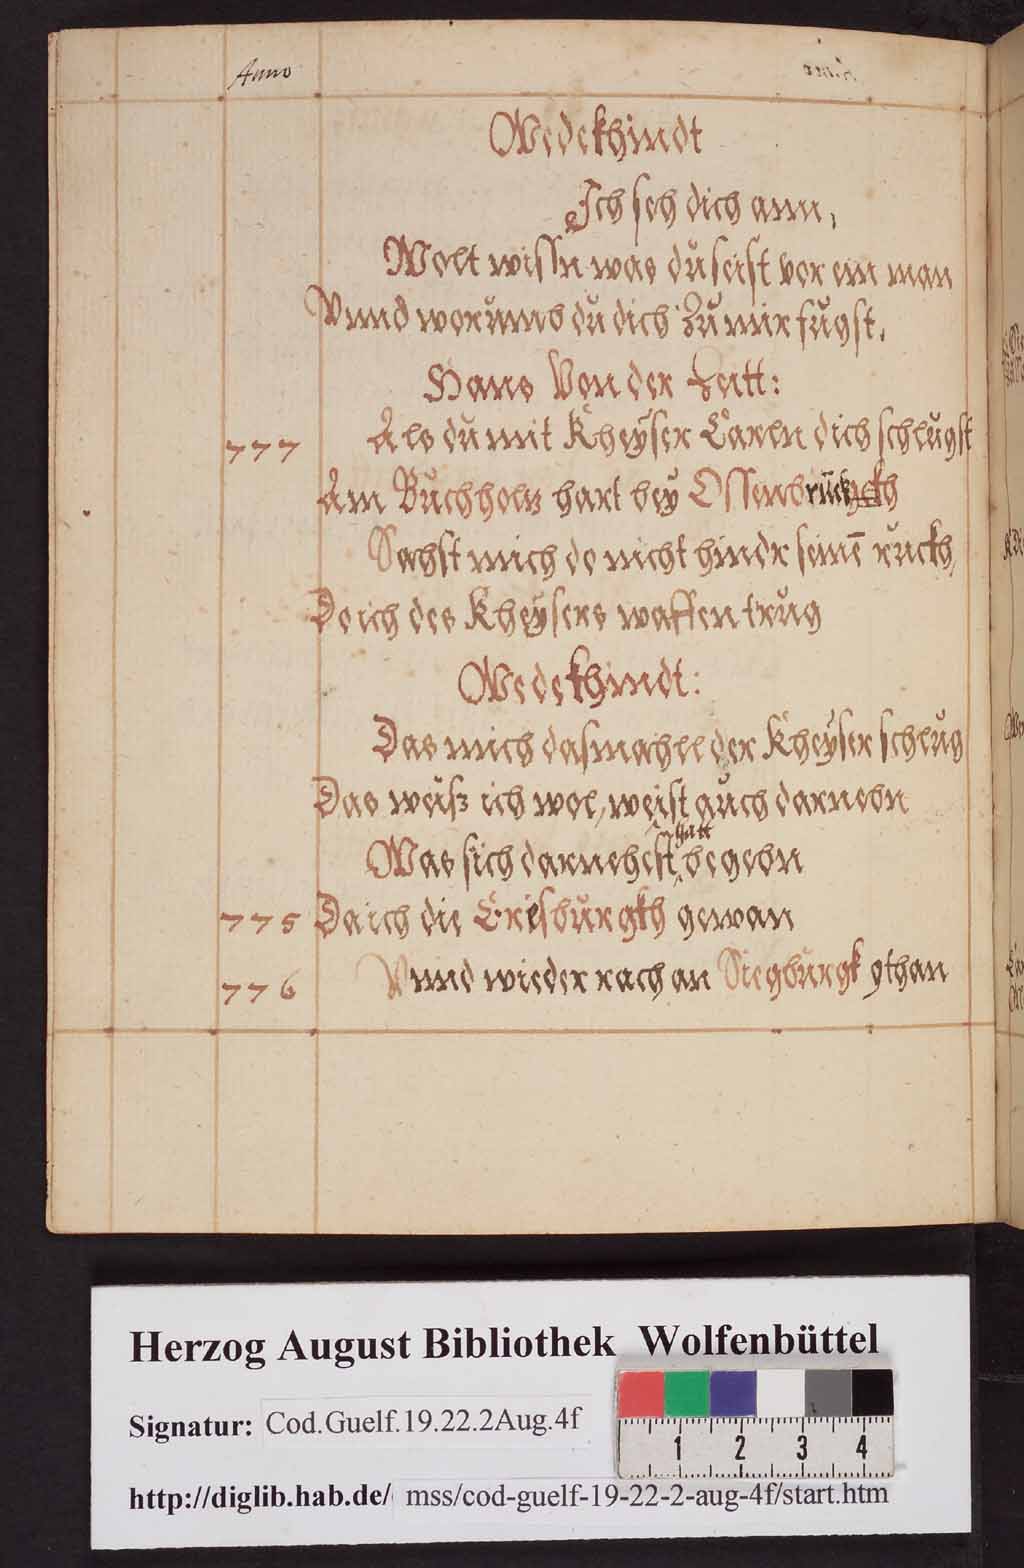 Anno
Wedekhindt
Ich seh dich ann,
Wolt wissn was du seist vor ein man
Vnnd worumb du dich zu mir fugst.
Hans Von der Zeitt:
777 Als du mit Kheyser Carln dich schlugst
Am Buchholtz hart bey Ossenbrück
Sachst mich do nicht hindr seinē ruckh,
Do ich des Kheysers waffen trug
Wedekhindt:
Das mich dasmahll der Kheyser schlug
Das weiß ich wol, weist auch darnebn
hatt
Was sich darnehest begebn
775 Da ich die Eresburgkh gewan
776 Vnnd wieder rach an Siegburgk gthan
Herzog August Bibliothek Wolfenbüttel
Signatur: Cod.Guelf.19.22.2Aug.4f
1 2 3 4
http://diglib.hab.de/ mss/cod-guelf-19-22-2-aug-4f/start.htm